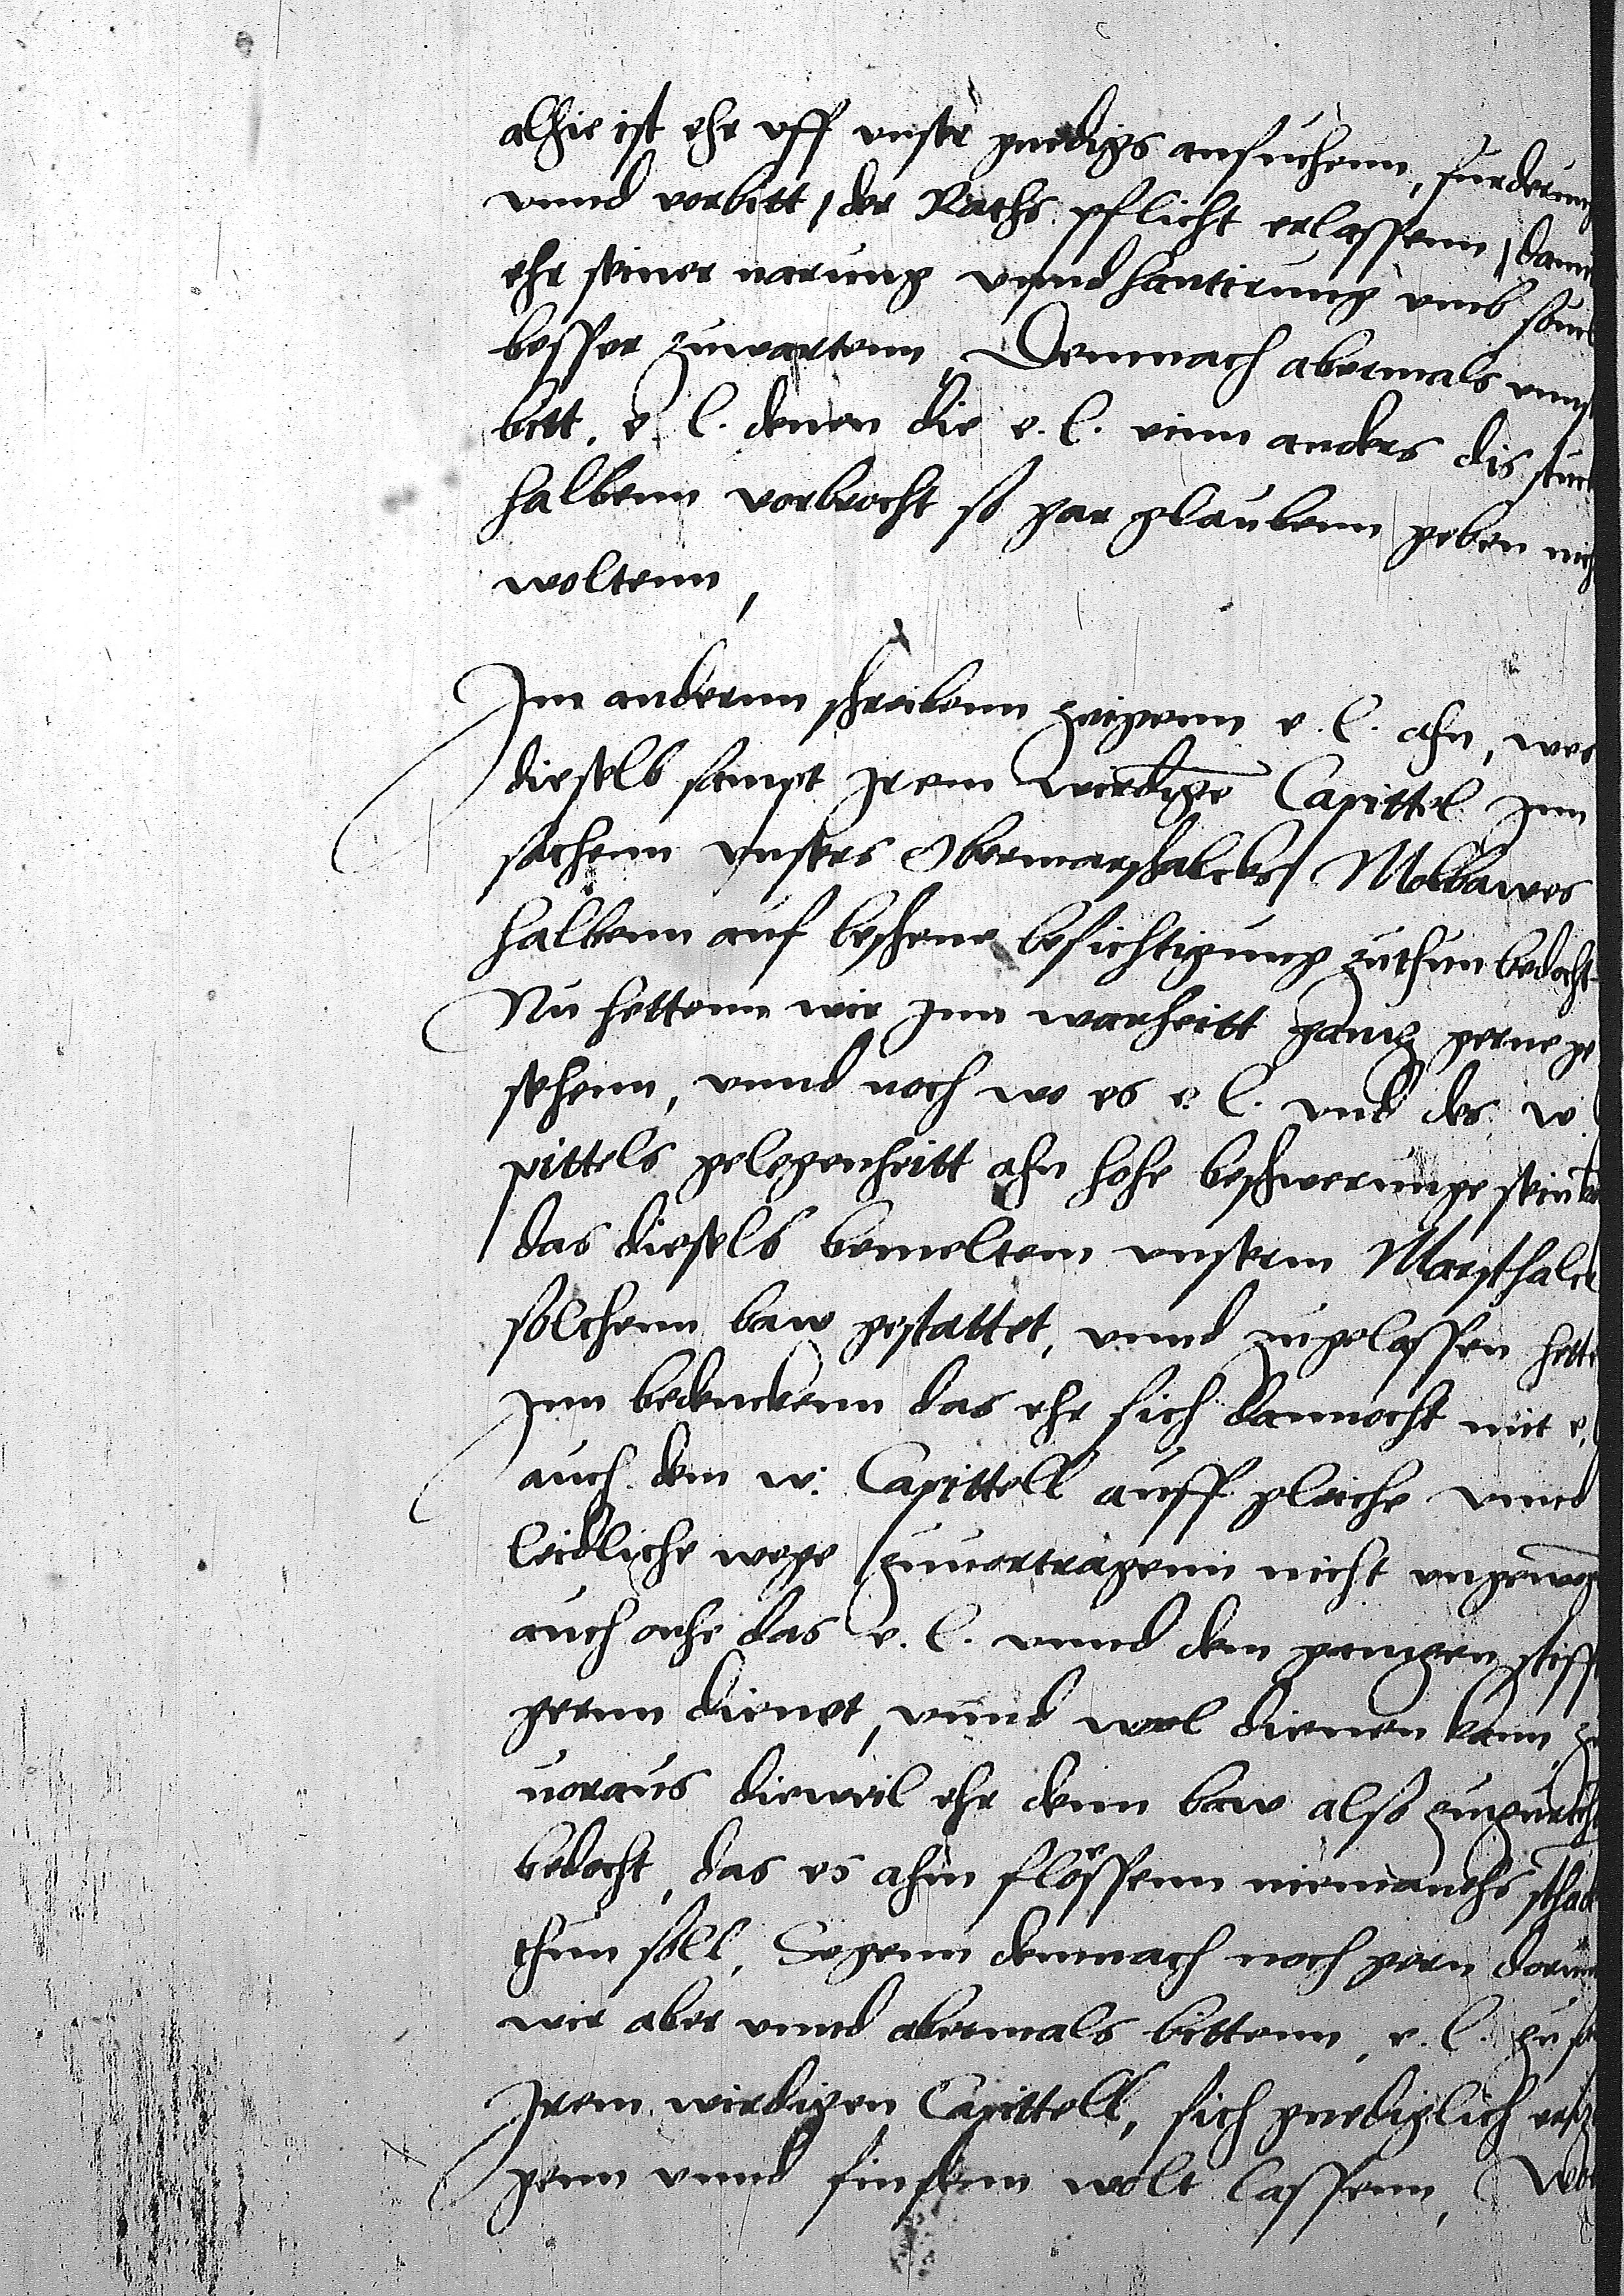 alhie ist ehr vff vnser gnedigs ansuchenn, furderung
vnnd vorbitt / der Raths pflicht erlassenn / damit
ehr seiner narung vnnd hantirung vmb souil
besser zuwartenn, Demnach abermals vnnser
bitt, e. l. denen die e. l. einn anders dis stuck
halbenn vorbrocht so gar glaubenn geben nicht
woltenn,
Im andernn schreibenn zeigenn e. l. ahn, wes
dieselb sampt Irem wirdige Capittel Inn
sachenn vnsers Obermarschalcks Molbawes
halbenn auf beschene besichtigung zuthun bedocht
Nu hettenn wir Inn warheitt gantz gerne ge
sehenn, vnnd noch wo es e. l. vnd des w.
pittels gelegenheitt ahn hohe beschwerunge sein
das dieselb bemeltem vnserm Marschalck
solchenn baw gestattet, vnnd zugelassen hette
Inn bedenckenn das ehr sich dannocht mit e.
auch dem w. Capittell auff gleiche vnnd
leidliche wege zuuortragenn nicht
auch ane das e. l. vnnd dem gantzen stifft
gernn dienet, vnnd wol dienen kann, zu
uoraus dieweil ehr denn baw also
bedocht, das es ahm flössenn niemandts schad
thun soll, Segenn demnach noch gern
wir aber vnnd abermals bittenn, e. l.
Irem wirdigen Capittell, sich gnediglich
genn vnnd finden wolt lassenn,